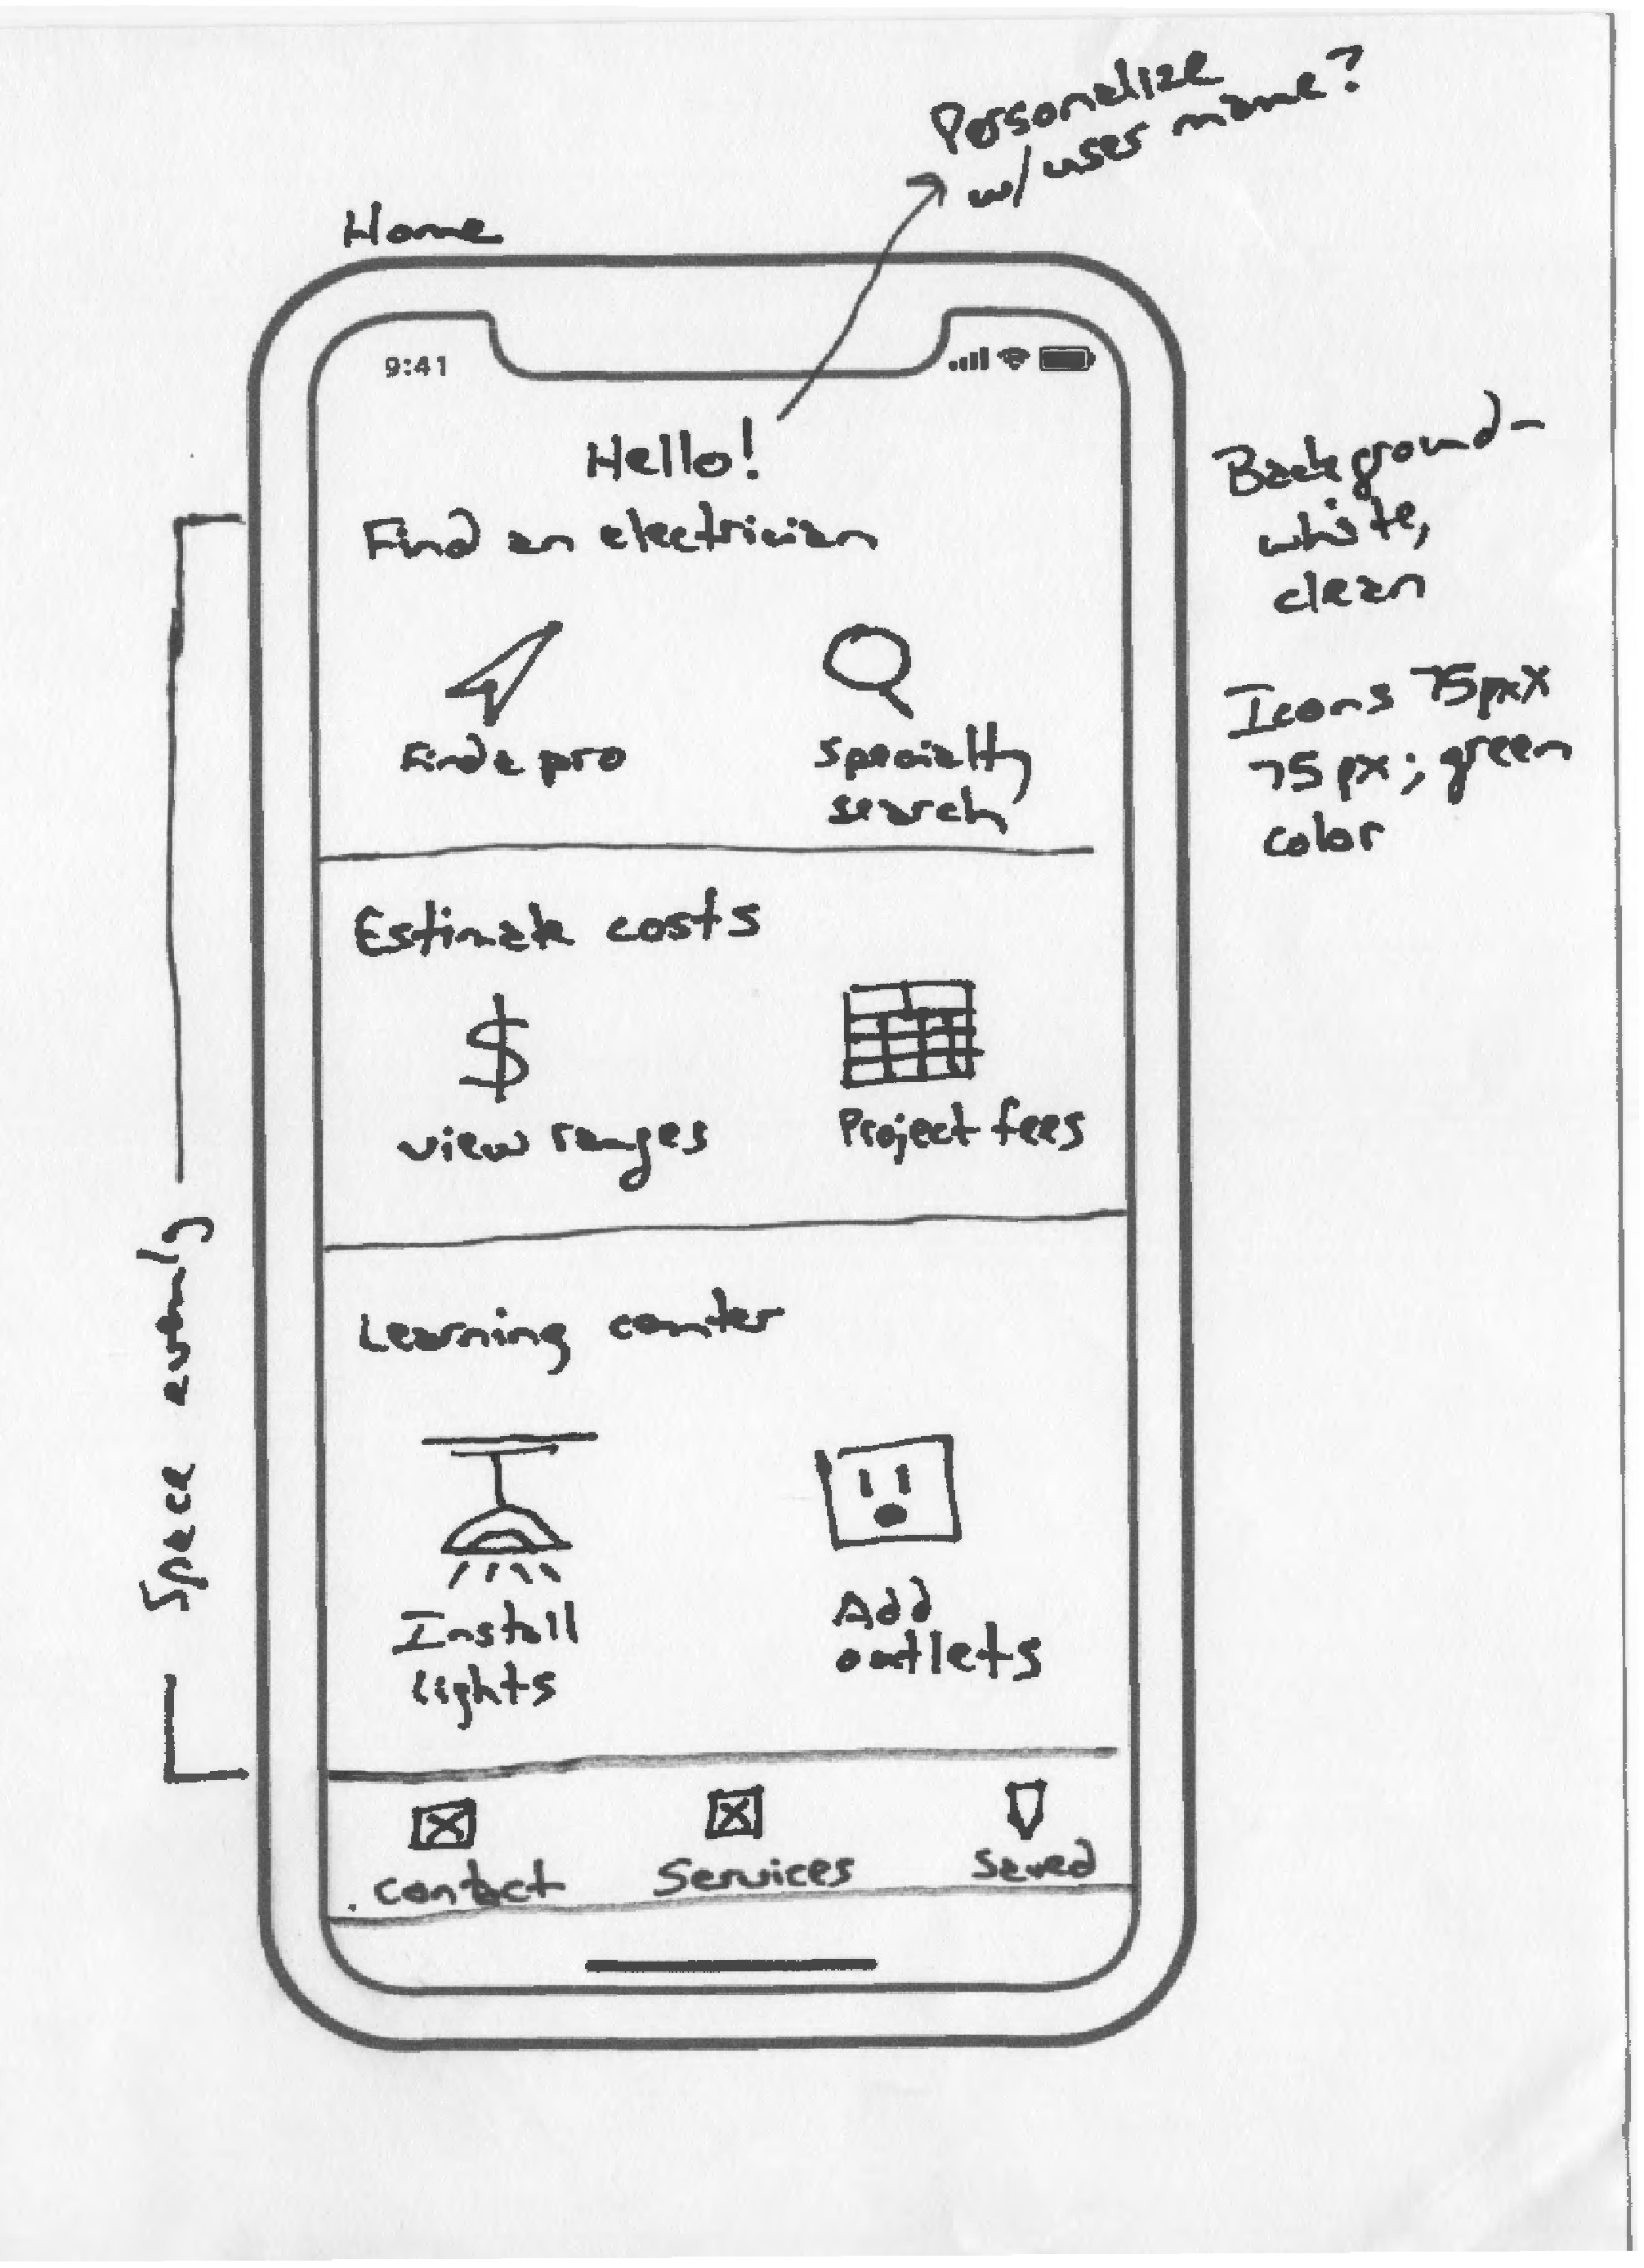 Personalize
w/ user name?
Home
9:41
Hello!
Find an electrician
Find a pro
Specialty
search
Background-
white,
clean
Icons 75px X
75px; green
color
Estimate costs
$
view ranges
Project fees
Space evenly
Learning counter
Install
lights
Add
outlets
Contact
Services
Saved